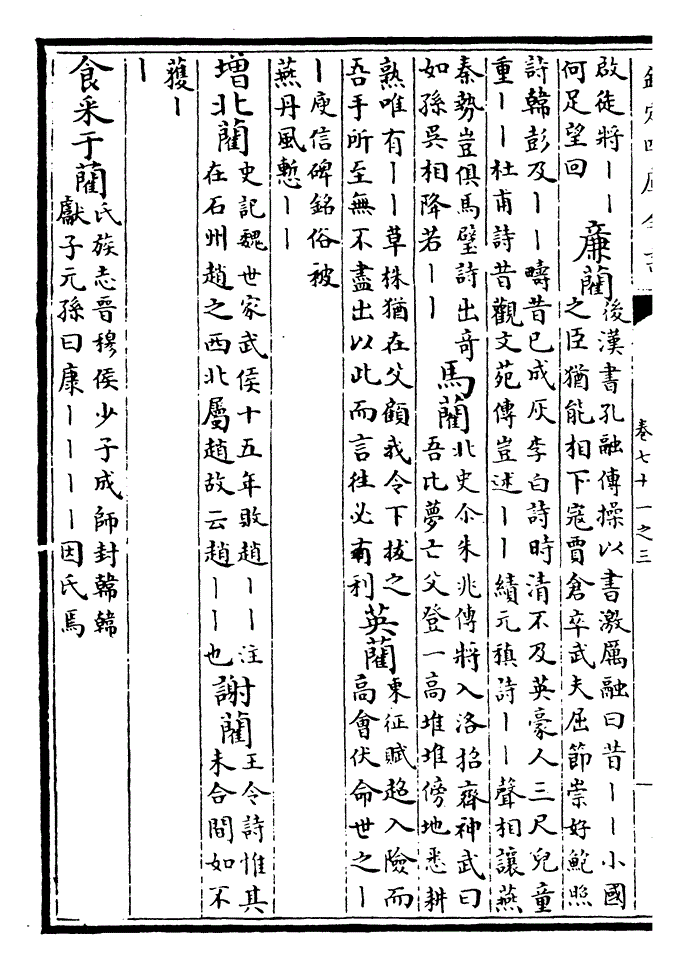 欽定四庫全書
卷七十一之三
啟徒將〡〡
何足望回
廉藺
後漢書孔融傳操以書激厲融曰昔〡〡小國
之臣猶能相下寇賈倉卒武夫屈節崇好鮑照
詩韓彭及〡〡疇昔已成灰李白詩時清不及英豪人三尺兒童
重〡〡杜甫詩昔觀文苑傳豈述〡〡績元稹詩〡〡聲相讓燕
秦勢豈俱馬璧詩出奇
如孫吳相降若〡〡
馬藺
北史尒朱兆傳將入洛招齊神武曰
吾比夢亡父登一高堆堆傍地悉耕
熟唯有〡〡草株猶在父顧我令下拔之
吾手所至無不盡出以此而言往必有利
英藺
東征賦超入險而
高會伏命世之〡
〡庾信碑銘俗被
燕丹風慙〡〡
增北藺
史記魏世家武侯十五年敗趙〡〡注
在石州趙之西北屬趙故云趙〡〡也
謝藺
王令詩惟其
未合間如不
獲〡
〡
食采于藺
氏族志晉穆侯少子成師封韓韓
獻子元孫曰康〡〡〡〡因氏焉